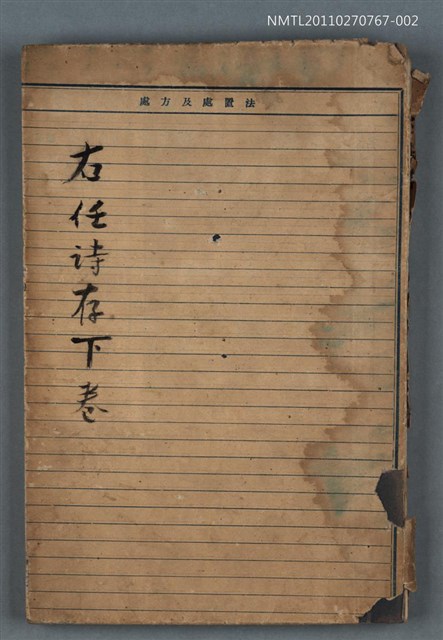 NMTL20110270767-002
處方及處置法
右任詩存下卷